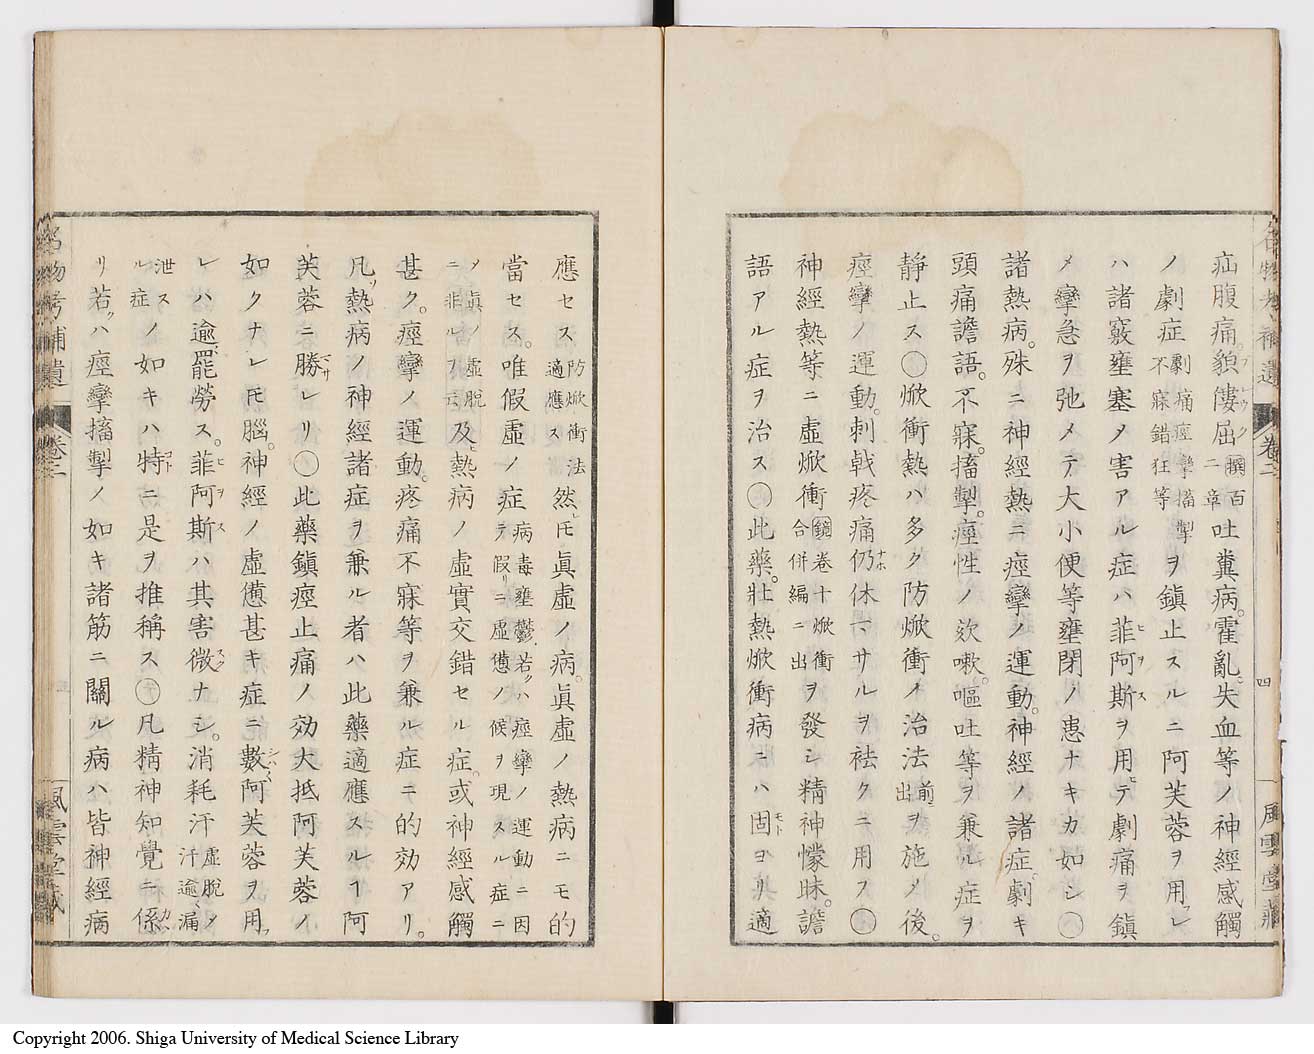 疝腹痛。貌僂屈百二撰章吐糞病。霍亂。失血等ノ神經感觸
ノ劇症劇痛痙攣搐掣不寐錯狂等ヲ鎭止スルニ阿芙蓉ヲ用フレ
ハ諸竅壅塞ノ害アル症ハ菲阿斯ヲ用ヒテ劇痛ヲ鎭
メ攣急ヲ弛メテ大小便等壅閉ノ患ナキカ如シ〇
諸熱病。殊ニ神經熱ニ痙攣ノ運動。神經ノ諸症劇キ
頭痛譫語。不寐。搐掣。痙性ノ欬嗽。嘔吐等ヲ兼ル症ヲ
靜止ス〇焮衝熱ハ多ク防焮衝ノ治法前ニ出ヲ施メ後。
痙攣ノ運動。刺戟疼痛仍ホ休マサルヲ袪クニ用フ〇
神經熱等ニ虛焮衝鏡卷十焮衝合併編ニ出ヲ發シ精神懞昧。譫
語アル症ヲ治ス〇此藥。壯熱焮衝病ニハ固ヨリ適
名物考補遺 卷二 四 風雲堂藏
應セス防焮衝法適應ス然ヒ眞虛ノ病。眞虛ノ熱病ニモ的
當セス。唯假虛ノ症病毒壅鬱若クハ痙攣ノ運動ニ因テ假リニ虛憊ノ候ヲ現スル症ニ
メ眞ノ虛脫ニ非ルヲ云及ヒ熱病ノ虛實交錯セル症。或神經感觸
甚ク。痙攣ノ運動。疼痛不寐等ヲ兼ル症ニ的効アリ。
凡ソ熱病ノ神經諸症ヲ兼ル者ハ此藥適應スルヿ阿
芙蓉ニ勝レリ〇此藥鎭痙止痛ノ効大抵阿芙蓉ノ
如クナレヒ腦。神經ノ虛憊甚キ症ニ數阿芙蓉ヲ用フ
レハ逾罷勞ス。菲阿斯ハ其害微ナシ。消耗汗虛脫メ汗逾漏
泄スル症ノ如キハ特ニ是ヲ推稱ス〇凡精神知覺ニ係
リ若クハ痙攣搐掣ノ如キ諸筋ニ關ル病ハ皆神經病
名物考補遺 卷二 風雲堂藏
Copyright 2006. Shiga University of Medical Science Library